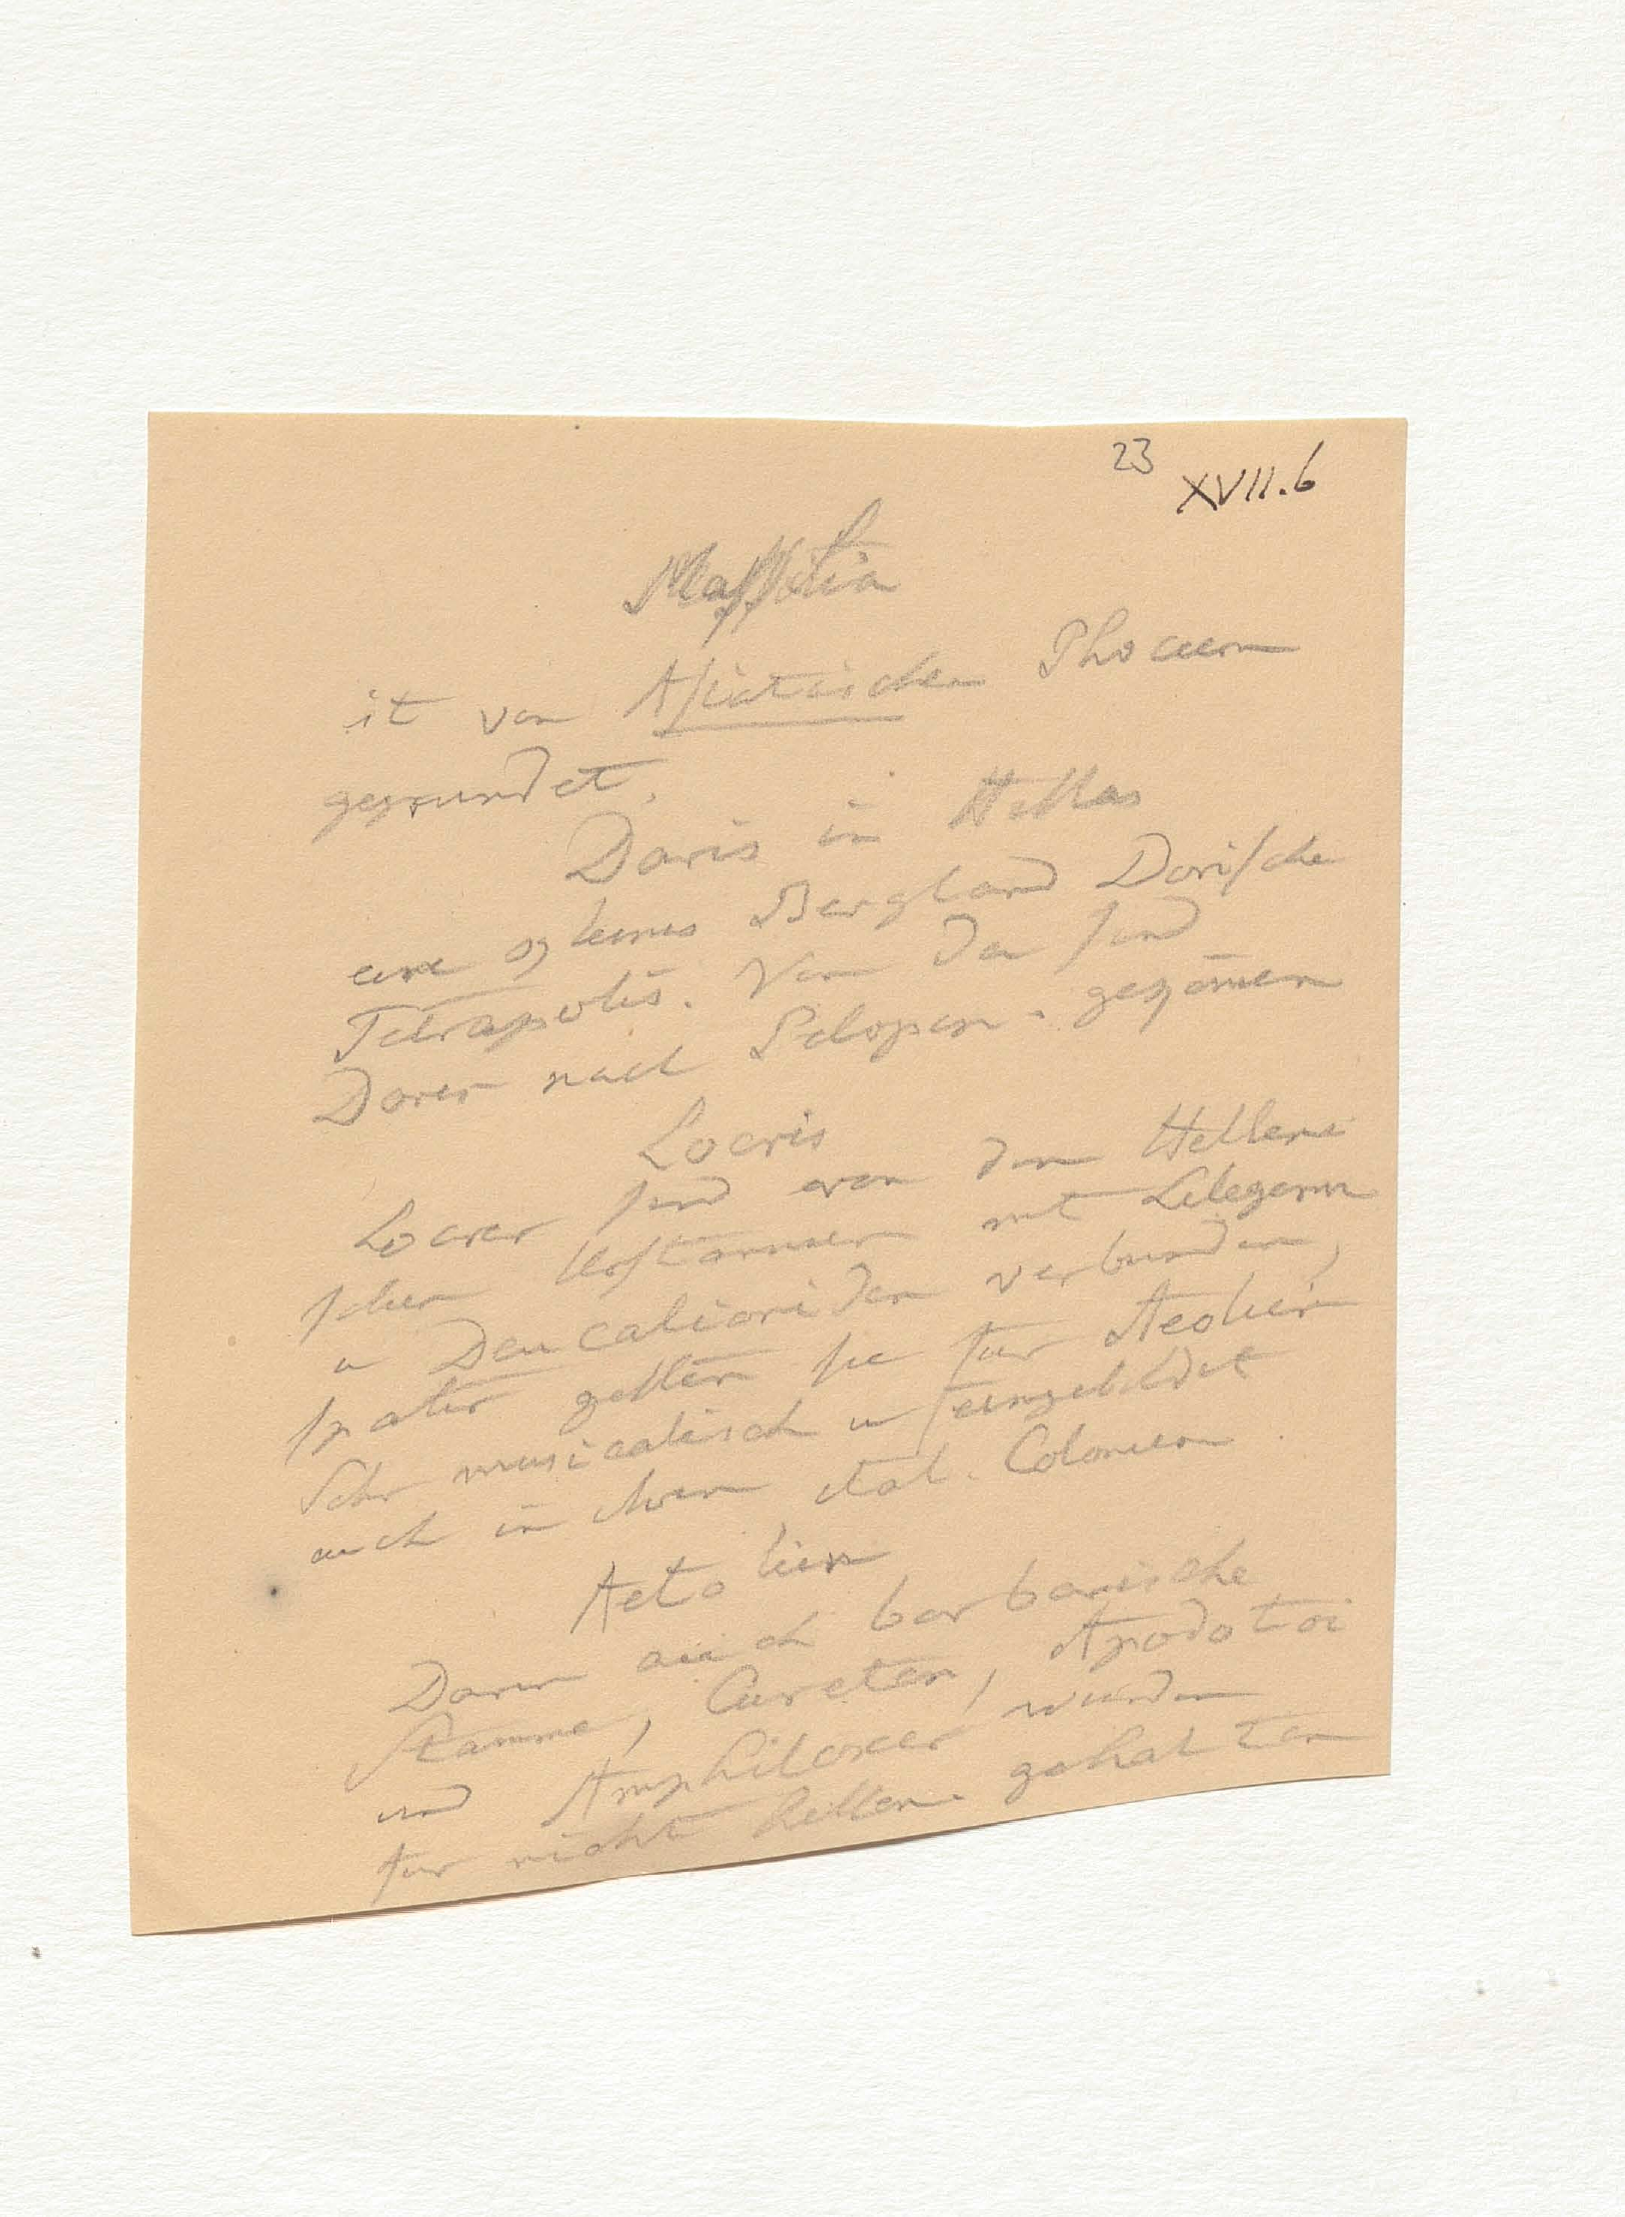 23
XVII.6
Massilia
ist von Asiatischen Phoceern
gegrundet.
Doris in Hellas
eine kleines Bergland Dorische
Tetrapolis. Von da sind
Dorer nach Pelopon. gekomen
Locris
Locrer sind von den Helleni
schen mit Lelegern
u Deucalioniden verbunden,
spater gelten sie fur Aeolier
Sehr musicalisch u feingebildet
auch in ihren ital. Colonieen
Aetolien
Darin auch barbarische
Stamme, Cureten, Apodotoi
und Amphilocher wurden
fur nicht hellen. gehalten